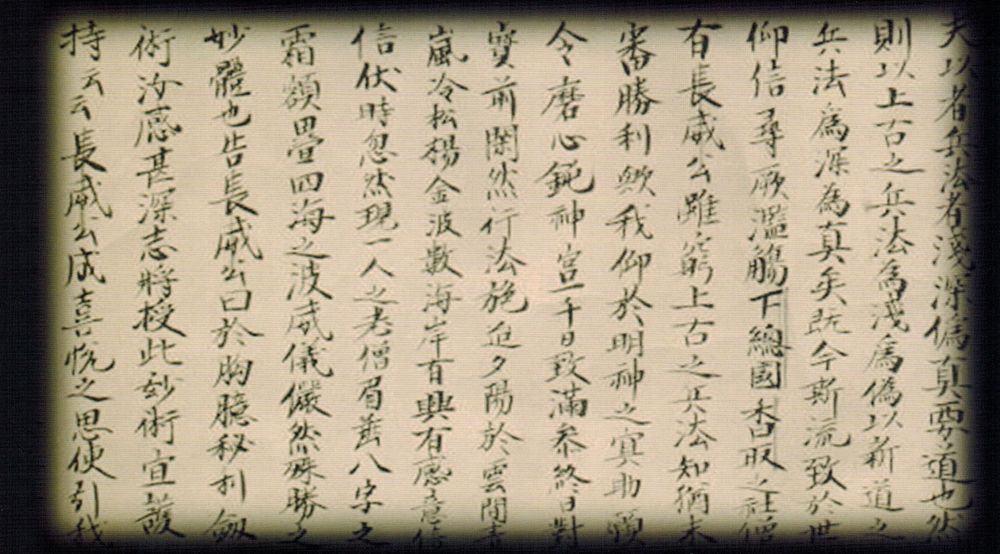 夫以者兵法者淺深偽真要道也然
則以上古之兵法為淺為偽以新道之
兵法為深為真矣既今斯流致於世
仰信尋厥濫觴下總國香取之社僧
有長威公雖窮上古之兵法知猶未
審勝利歟我仰於明神之冥助願
令磨心鈍神宮一千日致滿参終日對
寶前闌然行法施迫夕陽於雲間青
嵐冷松楊金波數海岸有興有感意信
信伏時忽然現一人之老僧眉舊八字之
霜額疊四海之波威儀儼然殊勝之
妙體也告長威公曰於胸臆秘利劔
術汝感甚深志將授此妙術宜護
持云云長威公成喜悦之思使引我